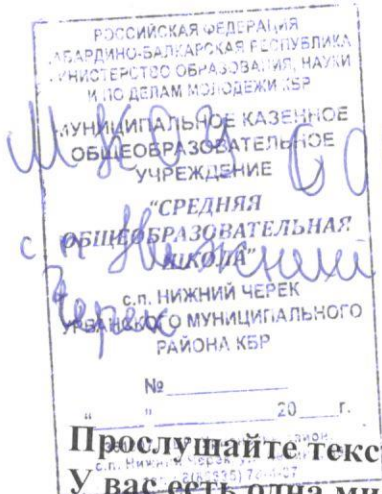 РОССИЙСКАЯ ФЕДЕРАЦИЯ
КАБАРДИНО-БАЛКАРСКАЯ РЕСПУБЛИКА
МИНИСТЕРСТВО ОБРАЗОВАНИЯ, НАУКИ
И ПО ДЕЛАМ МОЛОДЕЖИ КБР
МУНИЦИПАЛЬНОЕ КАЗЕННОЕ
ОБЩЕОБРАЗОВАТЕЛЬНОЕ
УЧРЕЖДЕНИЕ
МКОУ СО
"СРЕДНЯЯ
ОБЩЕОБРАЗОВАТЕЛЬНАЯ
ШКОЛА"
с.п. Нижний
Черек
с.п. НИЖНИЙ ЧЕРЕК
УРВАНСКОГО МУНИЦИПАЛЬНОГО
РАЙОНА КБР
№
" " 20 г.
Прослушайте текс
У вас есть одна ми